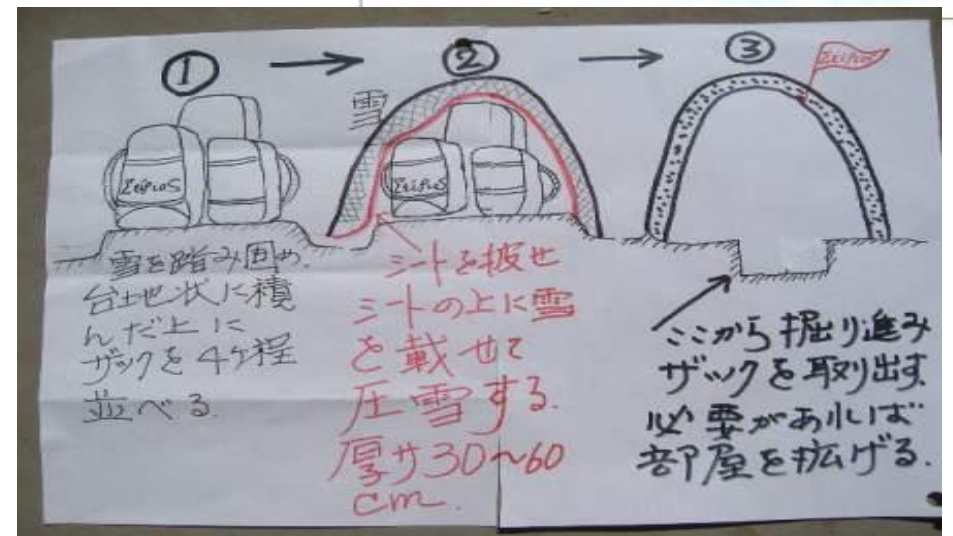 ①
→
②
→
③
ZeiplоS
雪
ZeiplоS
ZeiplоS
雪を踏み固め、
台地状に積
んだ上に
ザックを4ヶ程
並べる.
シートを披せ
シートの上に雪
を載せて
圧雪する.
厚サ30〜60
cm.
ここから掘り進み
ザックを取り出す.
必要があれば
部屋を拡げる.